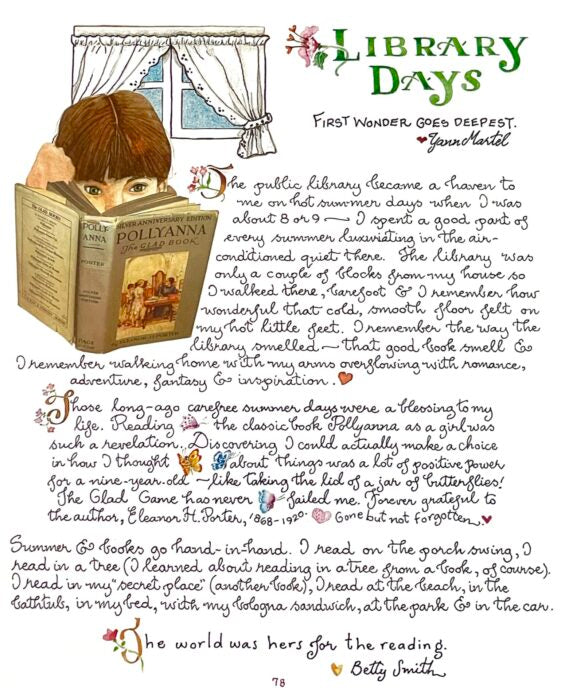 LIBRARY
DAYS
FIRST WONDER GOES DEEPEST.
Yann Martel
The public library became a haven to
me on hot summer days when I was
about 8 or 9 — I spent a good part of
every summer luxuriating in the air-
conditioned quiet there. The library was
only a couple of blocks from my house so
I walked there, barefoot & I remember how
wonderful that cold, smooth floor felt on
my hot little feet. I remember the way the
library smelled — that good book smell &
I remember walking home with my arms overflowing with romance,
adventure, fantasy & inspiration.
SILVER ANNIVERSARY EDITION
POLLYANNA
The GLAD BOOK
POLLY
ANNA
PORTER
SILVER
ANNIVERSARY
EDITION
PAGE
ELEANOR H. PORTER
Those long-ago carefree summer days were a blessing to my
life. Reading the classic book Pollyanna as a girl was
such a revelation. Discovering I could actually make a choice
in how I thought about things was a lot of positive power
for a nine-year-old — like taking the lid of a jar of butterflies!
The Glad Game has never failed me. Forever grateful to
the author, Eleanor H. Porter, 1868-1920. Gone but not forgotten.
Summer & books go hand-in-hand. I read on the porch swing, I
read in a tree (I learned about reading in a tree from a book, of course).
I read in my "secret place" (another book), I read at the beach, in the
bathtub, in my bed, with my bologna sandwich, at the park & in the car.
The world was hers for the reading.
Betty Smith
78